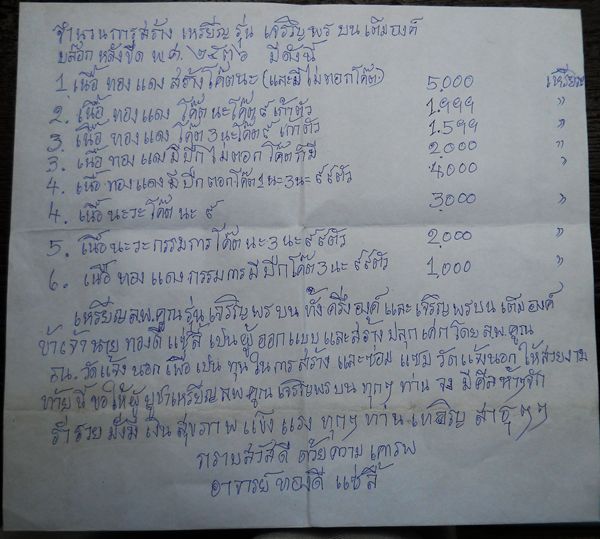 จำนวนการสร้าง เหรียญ รุ่น เจริญพร บน เต็มองค์
บล๊อก หลังขีด พ.ศ. ๒๕๓๖ มีดังนี้
1. เนื้อ ทองแดง สร้างโค๊ตนะ (และมีไม่ตอกโค๊ต) 5,000 เหรียญ
2. เนื้อ ทองแดง โค๊ต นะ โค๊ต ๙ เก้าตัว 1.999 "
3. เนื้อ ทองแดง โค๊ต 3 นะ โค๊ต ๙ เก้าตัว 1.599 "
3. เนื้อ ทองแดง มีปีก ไม่ตอก โค๊ตก็มี 2,000 "
4. เนื้อ ทองแดง มีปีก ตอกโค๊ต 1 นะ 3 นะ ๙ ๙ตัว 4,000
4. เนื้อ นะวะ โค๊ต นะ ๙ 3,000 "
5. เนื้อ นะวะ กรรมการ โค๊ต นะ 3 นะ ๙ ๙ตัว 2,000 "
6. เนื้อ ทองแดง กรรมการ มีปีก โค๊ต 3 นะ ๙ ๙ตัว 1,000 "
เหรียญ ลพ.คูณ รุ่น เจริญพร บน ทั้ง ครึ่งองค์ และ เจริญพร บน เต็มองค์
ข้าเจ้า นาย ทองดี แซ่ลี้ เป็น ผู้ ออกแบบ และ สร้าง ปลุกเศก โดย ลพ.คูณ
ณ. วัดแจ้งนอก เพื่อ เป็น ทุน ในการ สร้าง และ ซ่อม แซม วัดแจ้งนอก ให้สวยงาม
ท้ายนี้ ขอให้ ผู้ บูชา เหรียญ ลพ.คูณ เจริญพร บน ทุกๆ ท่าน จง มี
ร่ำรวย มั่งมี เงิน สุขภาพ แข็ง แรง ทุกๆ ท่าน เทอิญ สาธุๆๆ
กราบสวัสดี ด้วยความ เคารพ
อาจารย์ ทองดี แซ่ลี้